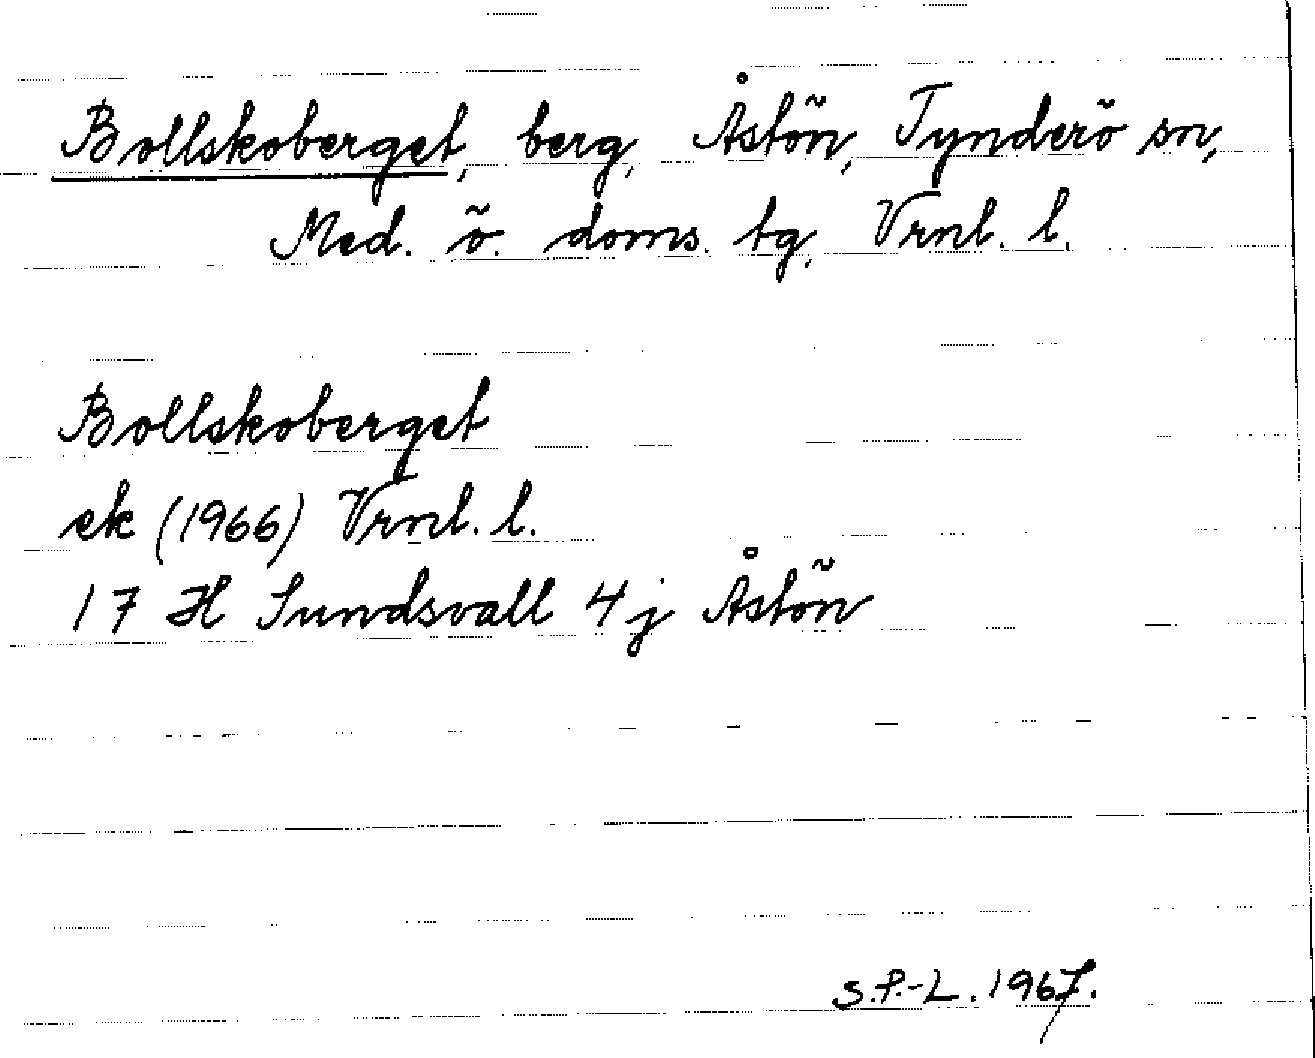 Bollskoberget, berg, Åstön, Tynderö sn,
Med. ö. doms. tg, Vrnl. l.
Bollskoberget
ek (1966) Vrnl. l.
17 H Sundsvall 4 j Åstön
S.P.-L. 1967.